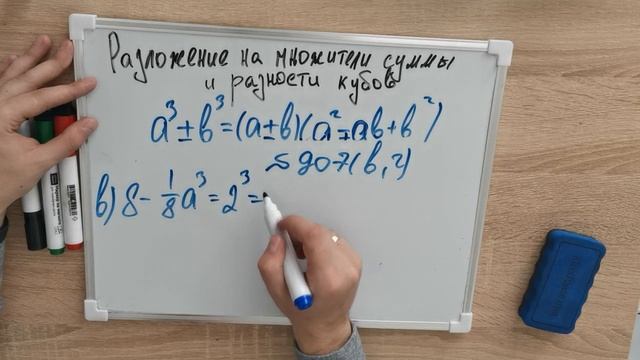 Разложение на множители суммы
и разности кубов
a³ ± b³ = (a ± b)(a² ∓ ab + b²)
в) 8 - 1/8 a³ = 2³ =